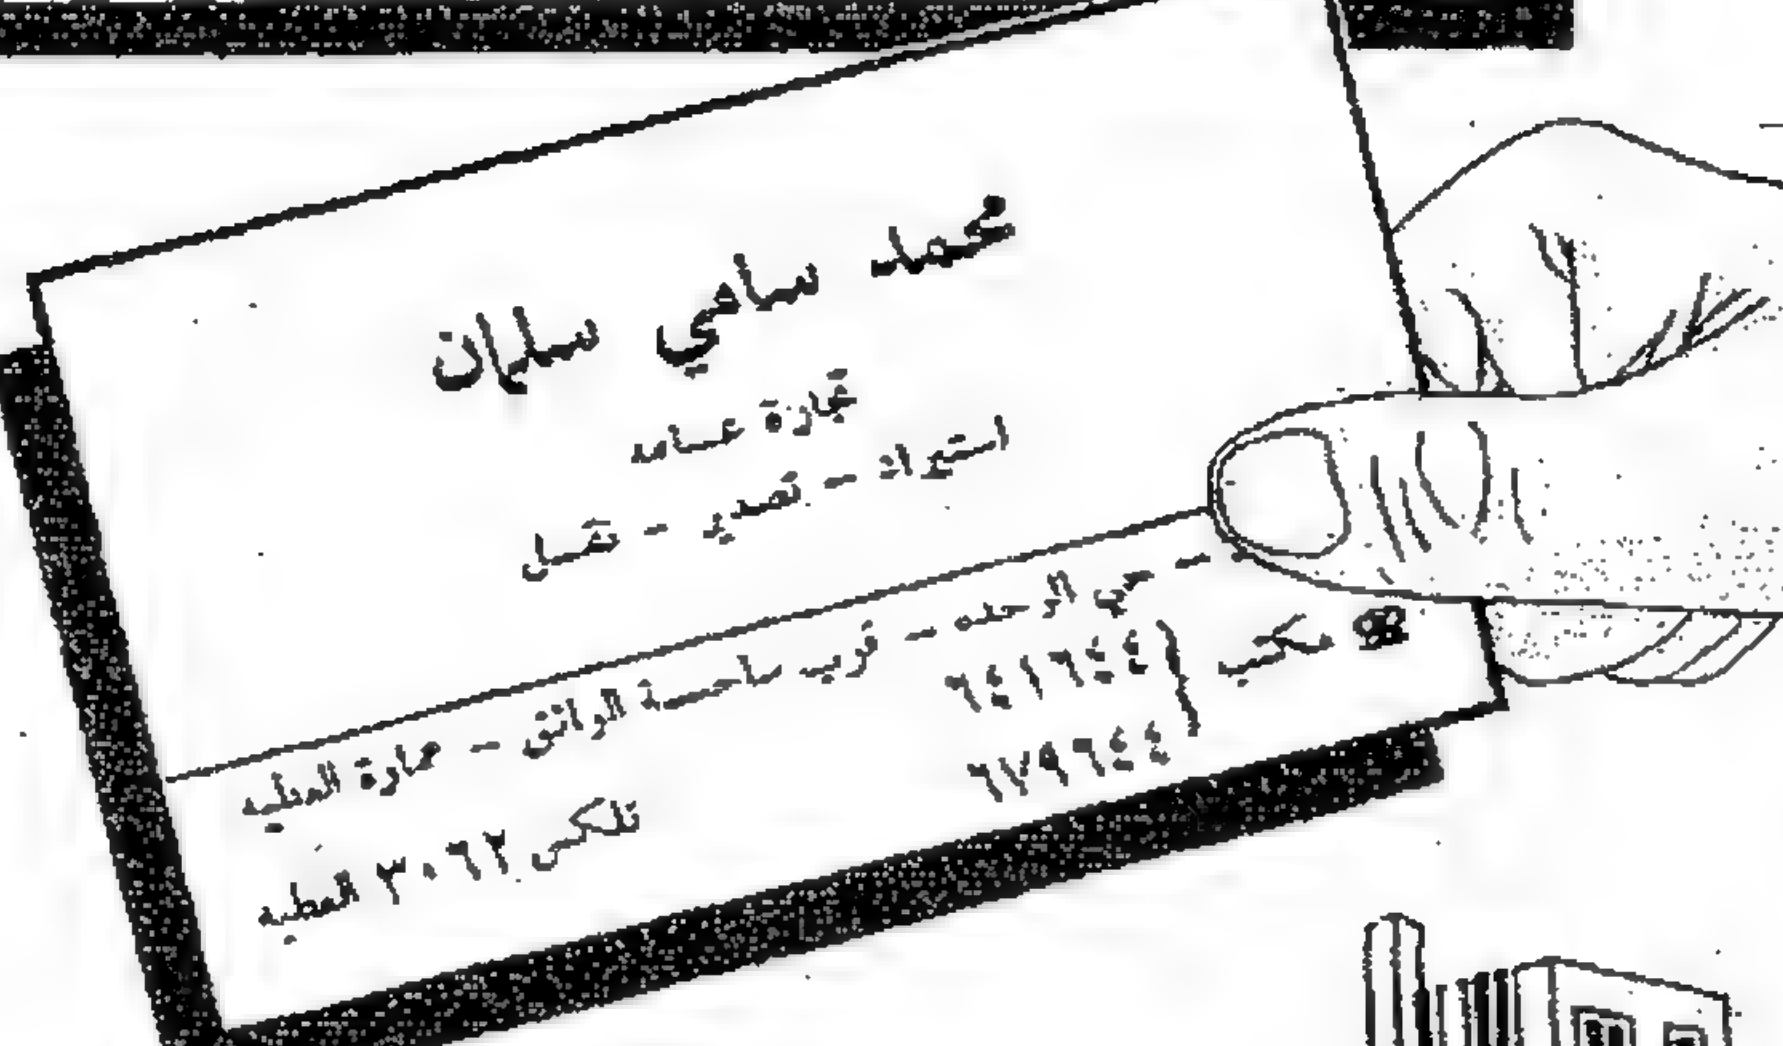 محمد سامي سلمان
تجارة عامه
استيراد – تصدير – نقل
– حي الوحده – قرب ساحة الواثق – عمارة العطيه
مكتب ٦٤١٦٤٤
٦٧٩٦٤٤
تلكس ٣٠٦٢ العطيه